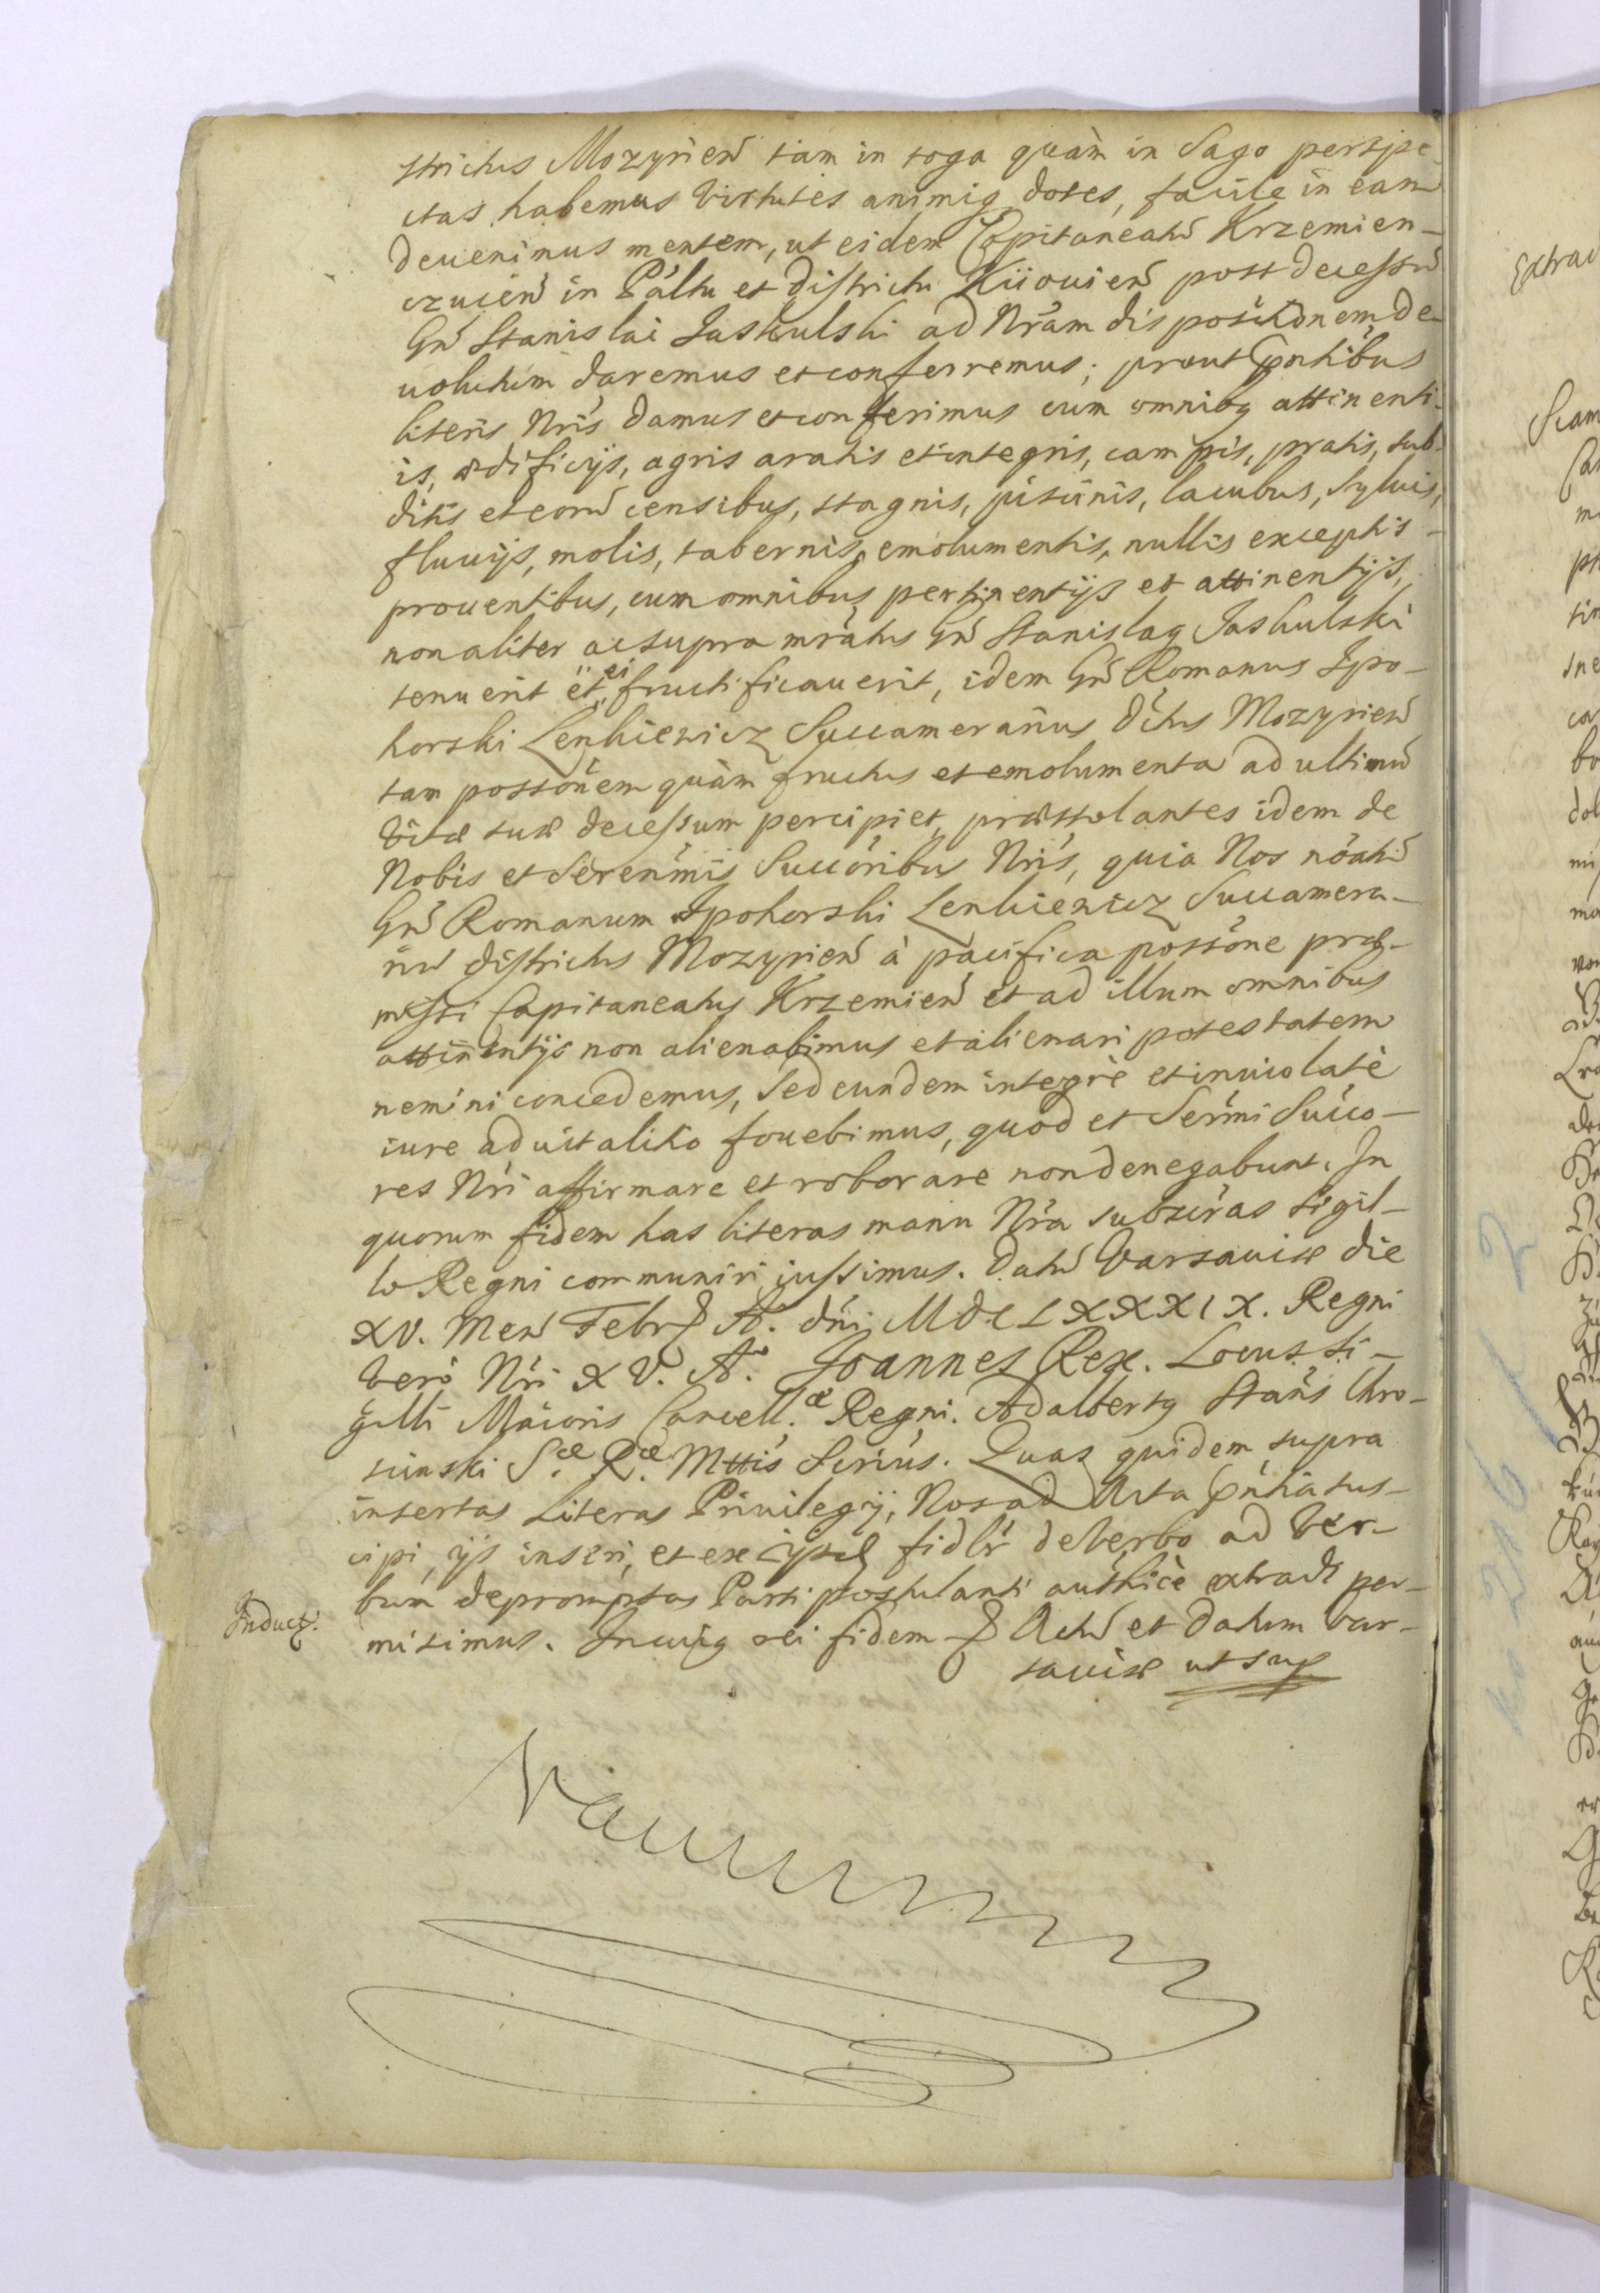 strictus Mozyrien tam in toga quàm in Sago perspe-
ctas habemus virtutes animiq dotes, facile in eam
deuenimus mentem, ut eidem Capitaneatũ Krzemien-
czucen in Paltu et districtu Kiiouien post decessũ
Gñ Stanislai Jaskulski ad Nram dispositionem de-
uolutum daremus et conferremus; prout pntibus
literis Nris damus et conferimus cum omnibq attinenti-
is, ædificijs, agris aratis et integris, campis, pratis, sub-
ditis et eorũ censibus, stagnis, piscinis, lacubus, syluis,
fluuijs, molis, tabernis, emolumentis, nullis exceptis
prouentibus, cum omnibus pertinentijs et attinentijs,
non aliter ac supra mratus Gñ Stanislaq Jaskulski
tenuerit et ei fructificauerit, idem Gñ Romanus Ipo-
horski Lenkiewicz Succameranus dictus Mozyrien
tam possonem quàm fructus et emolumenta ad ultimũ
vitæ suæ decessum percipiet, præstolantes idem de
Nobis et Serenmis Succoribus Nris, quia Nos noatũ
Gñ Romanum Ipohorski Lenkiewicz Succamera-
nũ districtus Mozyrien à pacifica possone præ-
missi Capitaneatus Krzemien et ad illum omnibus
attinentijs non alienabimus et alienari potestatem
nemini concedemus, Sed eundem integrè et inuiolatè
iure aduitalitio fouebimus, quod et Sermi Succo-
res Nri affirmare et roborare non denegabunt. In
quorum fidem has literas manu Nra subscras sigil-
lo Regni communiri iussimus. Datũ Varsauiæ die
XV. Men Febr A. dni MDCLXXXIX. Regni
vero Nri XV. Ao. Joannes Rex. Locus si-
gilli Maioris Cancell.æ Regni. Adalbertq Stans Chro-
scinski S.æ R.æ Mttis Scrius. Quas quidem supra
insertas Literas Priuilegij, Nos ad Acta pnti a sus-
cipi, ijs inscri, et ex ijsd fidlr de verbo ad ver-
bum depromptas Parti postulanti authicè extradi per-
misimus. In cuiq rei fidem Actũ et Datum Var-
sauiæ ut sup
Induct.